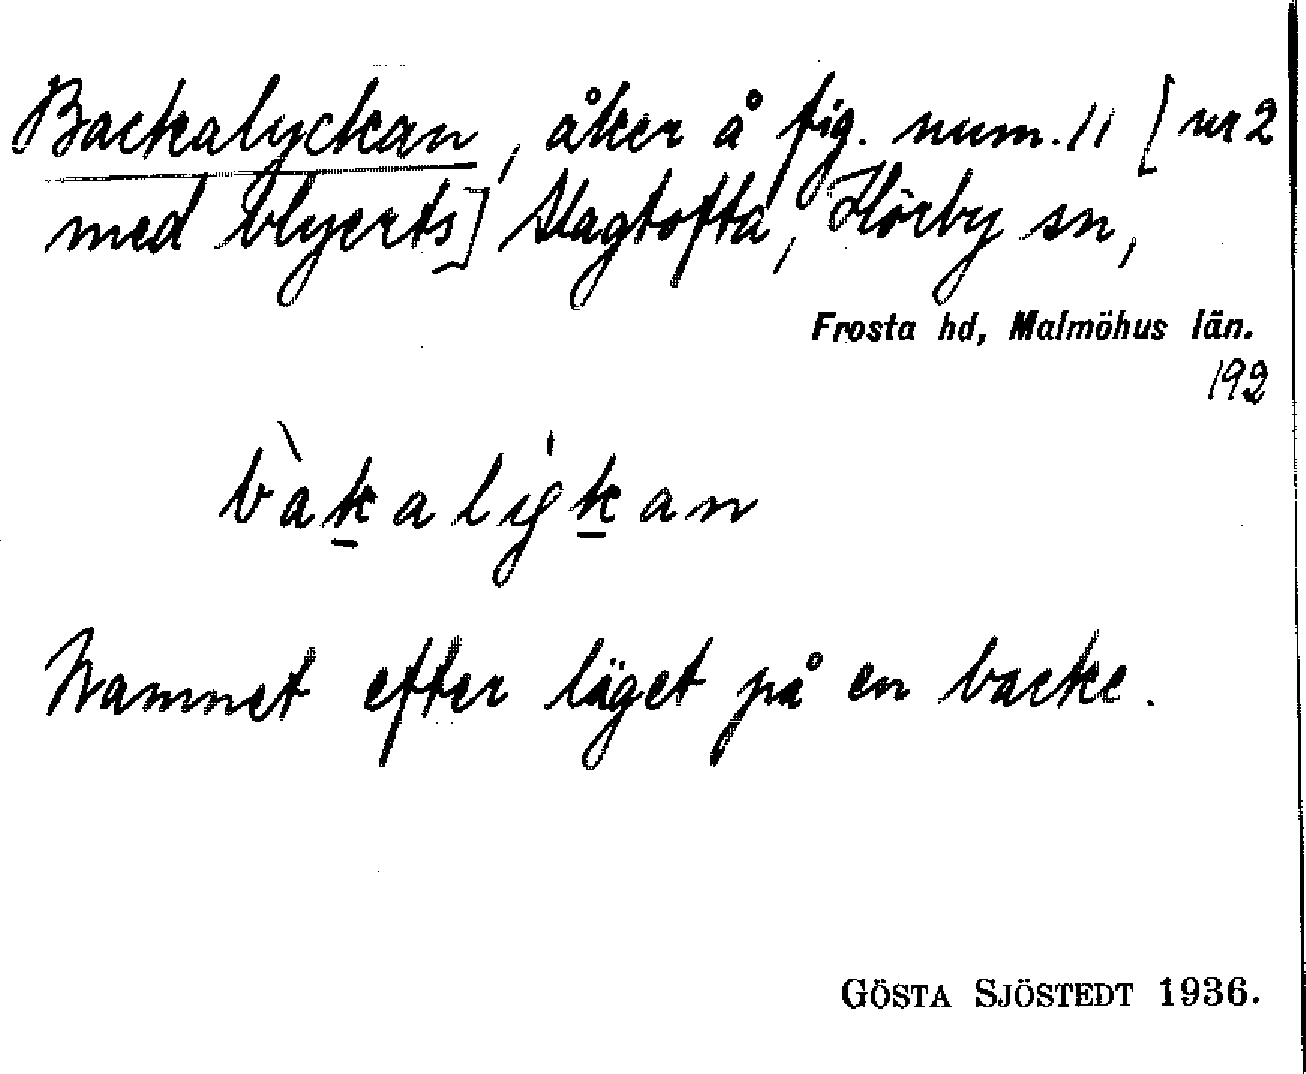 Backalyckan, åker å fig. num. 11 [nr 2
med blyerts] Slagtofta, Hörby sn,
Frosta hd, Malmöhus län.
192
bàkalykan
Namnet efter läget på en backe.
GÖSTA SJÖSTEDT 1936.